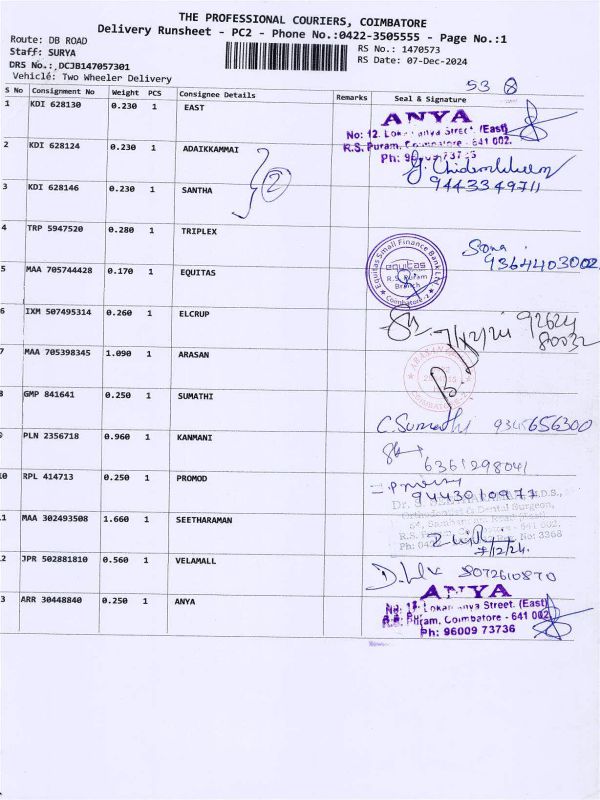 THE PROFESSIONAL COURIERS, COIMBATORE
Delivery Runsheet - PC2 - Phone No.:0422-3505555 - Page No.:1
Route: DB ROAD
Staff: SURYA
RS No.: 1470573
DRS No.: DCJB147057301
RS Date: 07-Dec-2024
Vehicle: Two Wheeler Delivery
53 8
S No Consignment No Weight PCS Consignee Details Remarks Seal & Signature
1 KDI 628130 0.230 1 EAST
ANYA
No: 12, Street, (East)
R.S. Puram, Coimbatore - 641 002.
Ph:
2 KDI 628124 0.230 1 ADAIKKAMMAI
2
9443349711
3 KDI 628146 0.230 1 SANTHA
4 TRP 5947520 0.280 1 TRIPLEX
Sona
9364403002
5 MAA 705744428 0.170 1 EQUITAS
Equitas Small Finance Bank Ltd
equitas
R.S. Puram
Branch
Coimbatore-2
6 IXM 507495314 0.260 1 ELCRUP
7/12/24 92624
80032
7 MAA 705398345 1.090 1 ARASAN
8 GMP 841641 0.250 1 SUMATHI
C. Sumathi 9345656300
9 PLN 2356718 0.960 1 KANMANI
6361298041
10 RPL 414713 0.250 1 PROMOD
9443010977
11 MAA 302493508 1.660 1 SEETHARAMAN
Dental Surgeon,
No: 3368
7/12/24
12 JPR 502881810 0.560 1 VELAMALL
8072610870
13 ARR 30448840 0.250 1 ANYA
ANYA
Street. (East)
Puram, Coimbatore - 641 002
Ph: 96009 73736